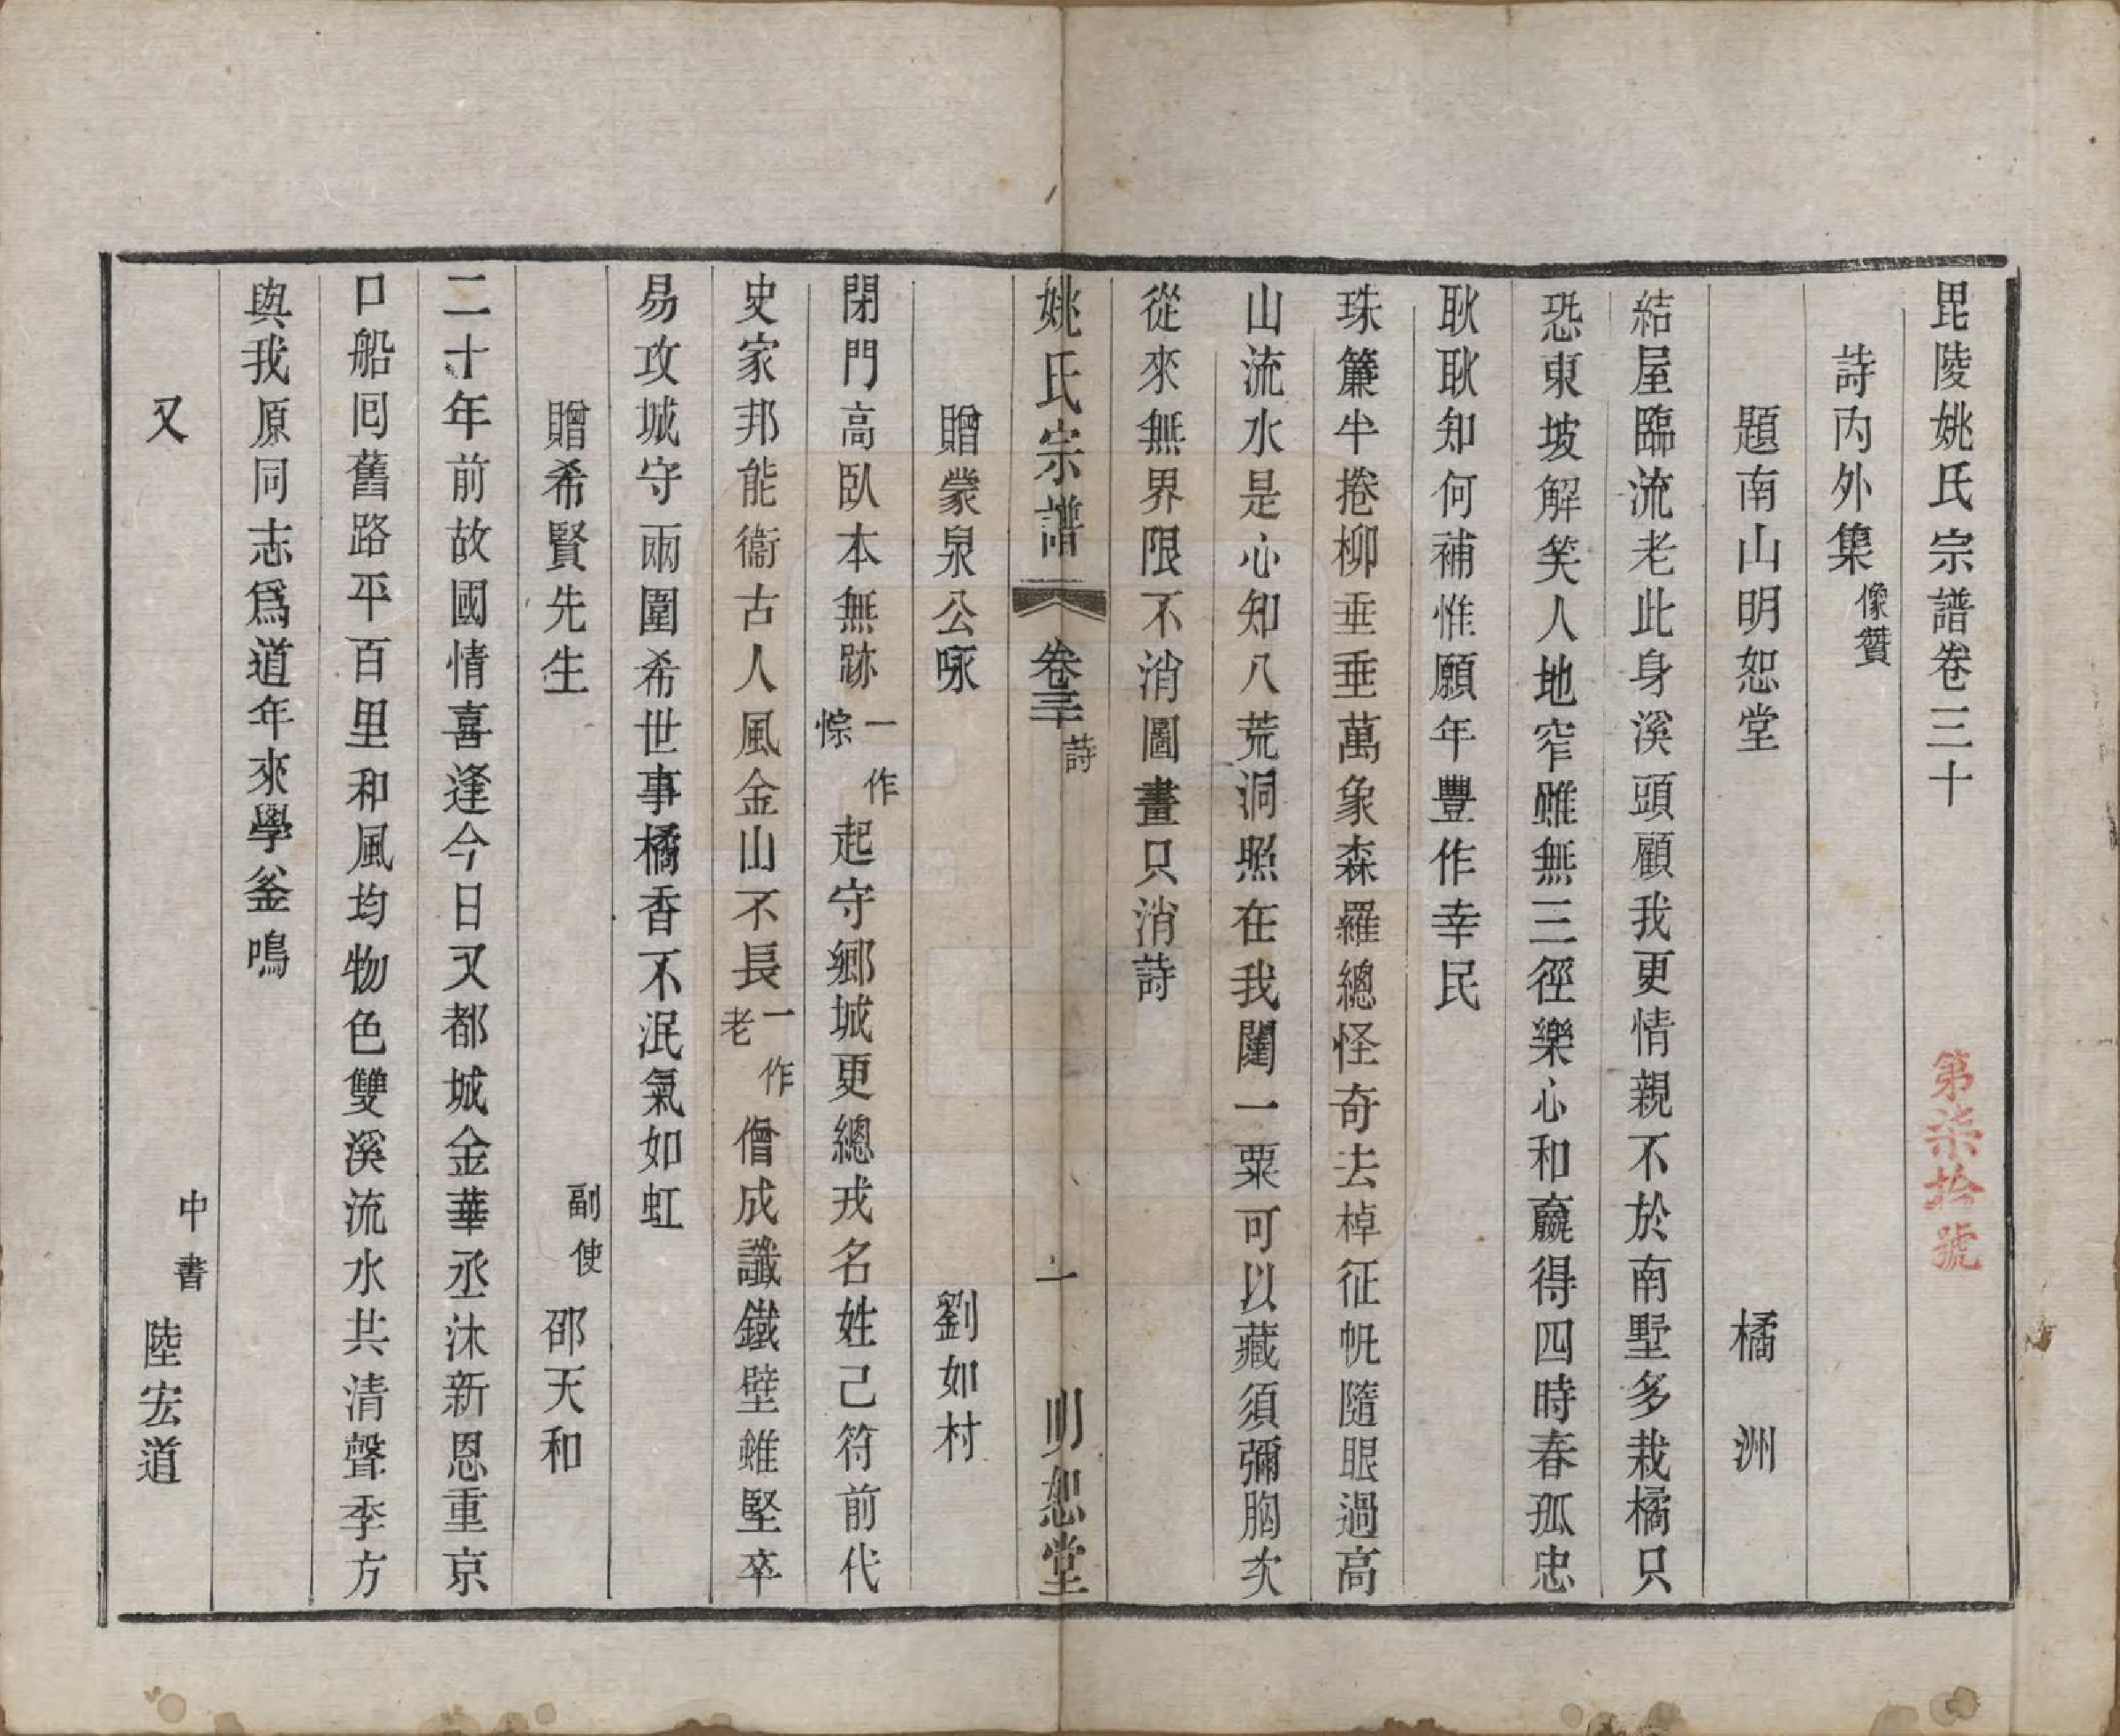 毘陵姚氏宗譜卷三十
第柒拾號
詩內外集像贊
題南山明恕堂 橘洲
結屋臨流老此身溪頭顧我更情親不於南墅多栽橘只
恐東坡解笑人地窄雖無三徑樂心和贏得四時春孤忠
耿耿知何補惟願年豐作幸民
珠簾半捲柳垂垂萬象森羅總怪奇去棹征帆隨眼過高
山流水是心知八荒洞照在我闥一粟可以藏須彌胸次
從來無界限不消圖畫只消詩
姚氏宗譜 卷三十 詩 一 明恕堂
贈蒙泉公咏 劉如村
閉門高臥本無跡一作悰起守鄉城更總戎名姓己符前代
史家邦能衞古人風金山不長一作老僧成讖鐵壁雖堅卒
易攻城守兩圍希世事橘香不泯氣如虹
贈希賢先生 副使邵天和
二十年前故國情喜逢今日又都城金華丞沐新恩重京
口船囘舊路平百里和風均物色雙溪流水共清聲季方
與我原同志爲道年來學釜鳴
又 中書陸宏道